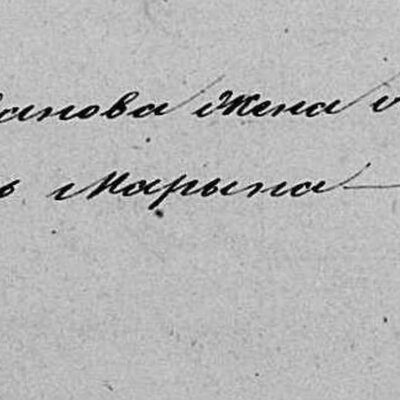 анова жена
Марына